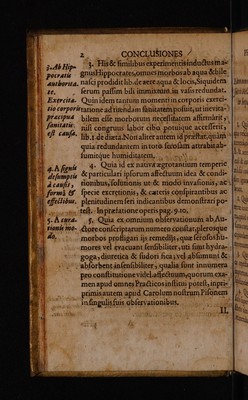 2 CONCLUSIONES
3. Ab Hip-
pocratis
authorita-
te.
Exercita-
tio corporis
præcipua
sanitatis
est causa.
3. His & similibus experimentis inductus ma-
gnus Hippocrates, omnes morbos ab aqua & bile
nasci prodidit lib. de aere aqua & locis, Siquidem
serum passim bili immixtum in vasis redundat.
Quin idem tantum momenti in corporis exerci-
tatione ad tuendam sanitatem posuit, ut inevita-
bilem esse morborum necessitatem affirmârit,
nisi congruus labor cibo potuique accesserit,
lib. 1 de diæta. Non aliter autem id præstat, quàm
quia redundantem in toto serosam attrahit ab-
sumitque humiditatem.
4. A signis
desumptis
à causis,
formâ &
effectibus.
4. Quia id ex nativa ægrotantium temperie
& particulari ipsorum affectuum idea & condi-
tionibus, solutionis ut & modo invasionis, ac
specie excretionis, & cæteris conspirantibus ad
plenitudinem seri indicantibus demonstrari po-
test. In præfatione operis pag. 9. 10.
5. A cura-
tionis mo-
do.
5. Quia ex omnium observationum ab Au-
ctore conscriptarum numero constat, plerosque
morbos profligari ijs remedijs, quæ serosos hu-
mores vel evacuant sensibiliter, uti sunt hydra-
goga, diuretica & sudorifica, vel absumunt &
absorbent insensibiliter, qualia sunt innumera
pro constitutione videl. affectuum, quorum exa-
men apud omnes Practicos institui potest, inpri-
primis autem apud Carolum nostrum Pisonem
in singulis suis observationibus.
II.